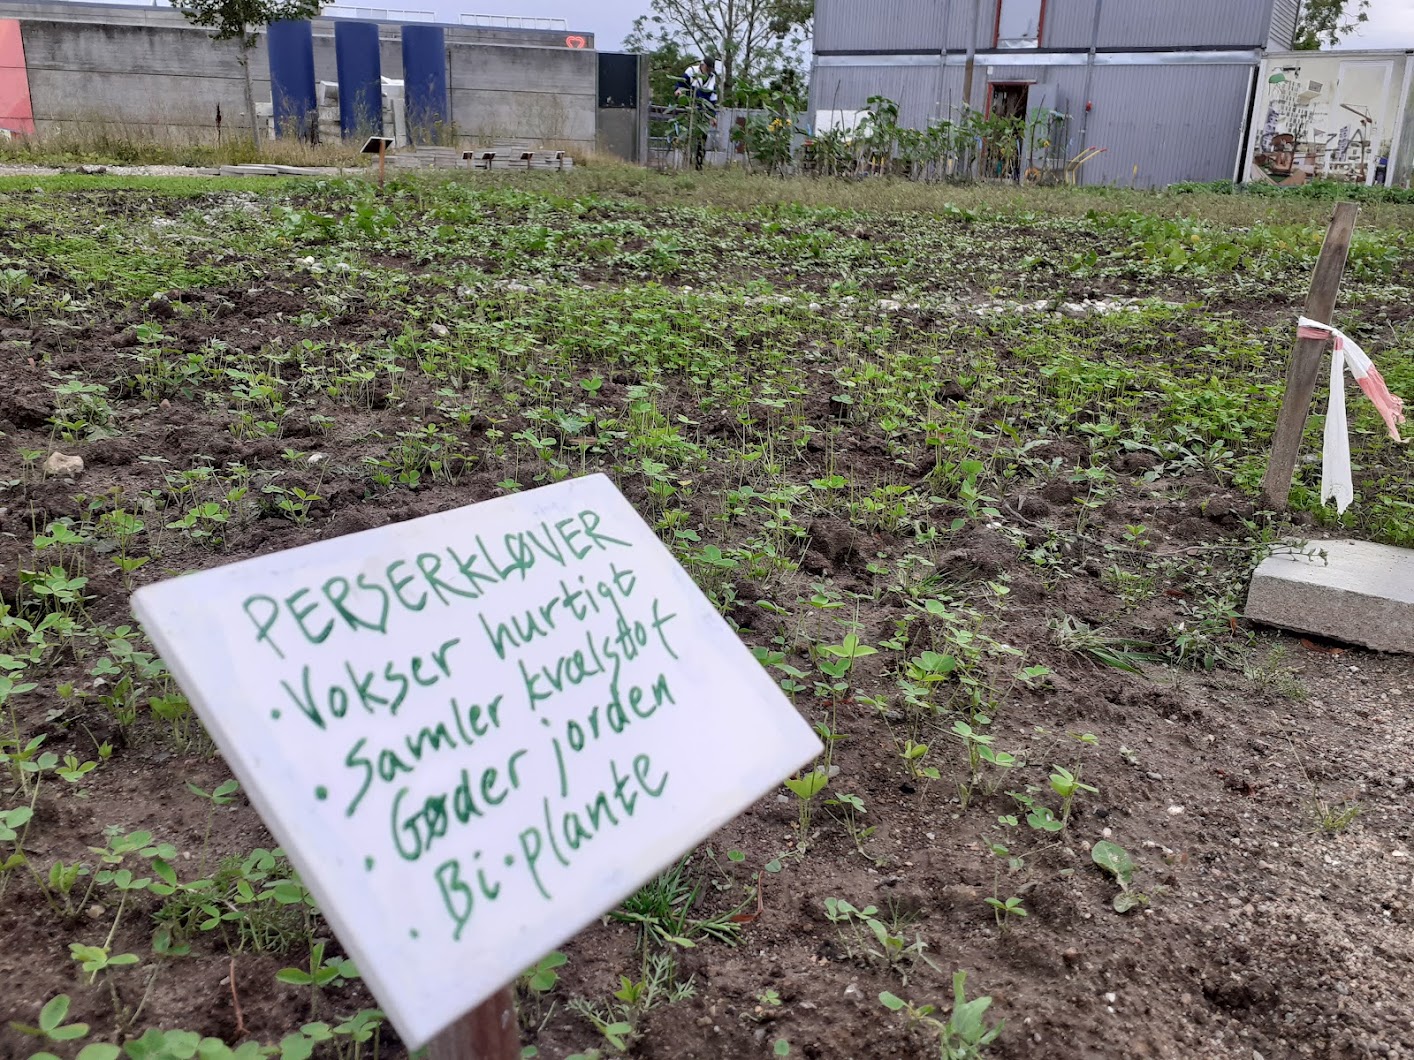 PERSERKLØVER
• Vokser hurtigt
• Samler kvælstof
• Gøder jorden
• Bi-plante